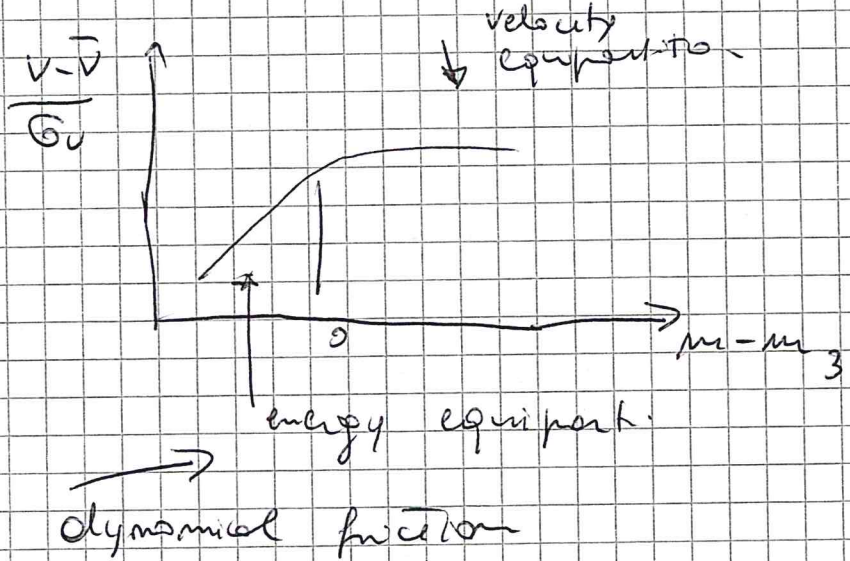 velocity
equipartitio
V-V̅
σv
0
m - m 3
energy equipart.
dynamical friction